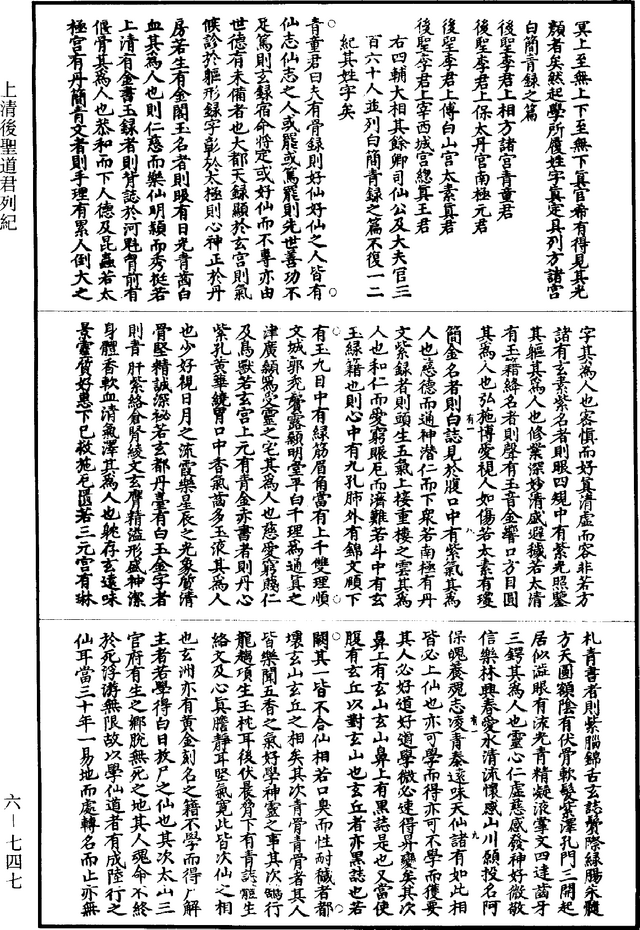 冥上至無上下至無下真官希有得見其光
顏者矣然起學所履姓字真定具列方諸宮
白簡青録之篇
後聖李君上相方諸宮青童君
後聖李君上保太丹宮南極元君
後聖李君上傅白山宮太素真君
後聖李君上宰西城宮總真王君
右四輔大相其餘卿司仙公及大夫官三
百六十人並列白簡青録之篇不復一二
紀其姓字矣
青童君曰夫有骨録則好仙好仙之人皆有
仙志仙志之人或罷或篤罷則先世善功不
足篤則玄録宿命將定或好仙而不專亦由
世德有未備者也大都天録顯於玄宮則氣
候診於軀形録字彰於太極則心神正於丹
房若生有金閣玉名者則眼有日光青齒白
血其為人也則仁慈而樂仙明穎而秀挺若
上清有金書玉録者則背誌於河魁胷前有
偃骨其為人也恭和而下人德及昆蟲若太
極宮有丹簡青文者則手理有累人倒大之
字其為人也容慎而好真清虛而容非若方
諸有玄素紫名者則眼四規中有紫光照鑒
其軀其為人也修業深妙清盛遐穢若太清
有玉簡絳名者則聲有玉音金響口方目圓
其為人也弘施博愛視人如傷若太素有瓊
簡金名者則白誌見於腹口中有紫氣其為
人也慈德而通神潜仁而下衆若南極有丹
文紫録者則頭生五氣上接重樓之雲其為
人也和仁而愛窮賑卮而濟難若斗中有玄
玉緑籍也則心中有九孔肺外有錦文順下
有玉九目中有緑筋眉角當有上千雙理順
文城郭充鬢露顯明堂平白千理為通真之
津廣頰為受靈之宅其為人也慈愛窮賤仁
及鳥獸若玄宮上元有青金赤書者則丹心
紫孔黄華繞胃口中香氣齒多玉液其為人
也少好視日月之流霞樂星辰之光象質清
骨堅精誠深祕若玄都丹臺有白玉金字者
則青肝紫絡倉腎綾文玄膺精溢形盛神潔
身體香軟血清氣澤其為人也躭存玄遠味
景靈質好惠下己救施厄匱若三元宮有琳
札青書者則紫腦錦舌玄誌鬢際緑腸朱髓
方天圓額陰有伏骨軟髮紫澤孔門三開起
居似溢眼有流光青精凝液羣文四達齒牙
三鍔其為人也靈心仁虛慈感發神好微敬
信樂林興春愛水清流懷感山川願投名阿
保魄養魂志凌青秦遠味天仙諸有如此相
皆必上仙也亦可學而得亦可不學而獲要
其人必好道好道學微必速得昇變矣其次
鼻上有玄山玄山鼻上有黑誌是也又當使
腹有玄丘以對玄山也玄丘者亦黑誌也若
闕其一皆不合仙相若口臭而性耐穢者都
壞玄山玄丘之相矣其次青骨青骨者其人
皆樂聞五香之氣好學神靈之事其次鵠行
龍趨項生玉枕耳後伏晨脅下有青誌龍生
絡文及心真膽靜耳堅氣寬此皆次仙之相
也玄洲亦有黄金刻名之籍不學而得尸解
主者若學得白日救尸之仙也其次太山三
官府有生之鄉脫無死之地其人魂命不終
於死浮游無限故以學仙道者有成陸行之
仙耳當三十年一易地而處轉名而止亦無
上清後聖道君列紀
六－七四七